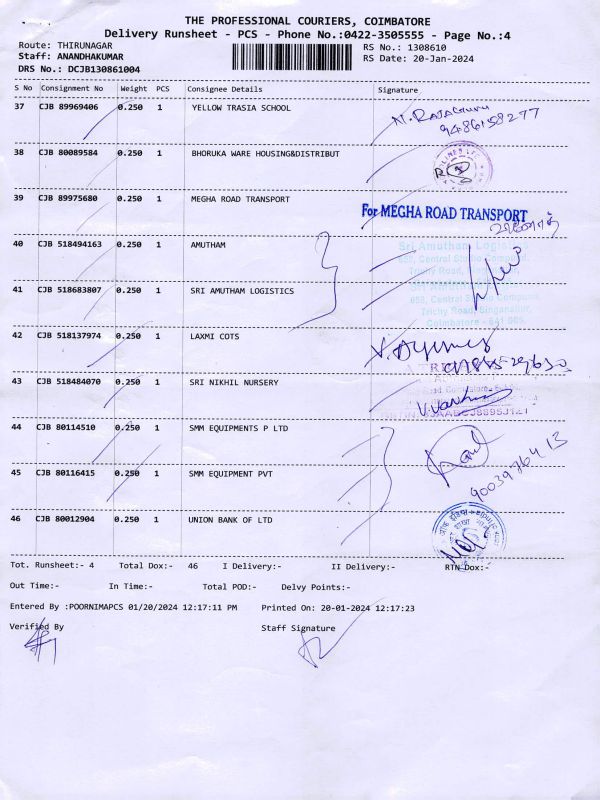 THE PROFESSIONAL COURIERS, COIMBATORE
Delivery Runsheet - PCS - Phone No.:0422-3505555 - Page No.:4
Route: THIRUNAGAR
RS No.: 1308610
Staff: ANANDHAKUMAR
RS Date: 20-Jan-2024
DRS No.: DCJB130861004
S No Consignment No Weight PCS Consignee Details Signature
37 CJB 89969406 0.250 1 YELLOW TRASIA SCHOOL
N. RAJAGURU
9486158277
38 CJB 80089584 0.250 1 BHORUKA WARE HOUSING&DISTRIBUT
39 CJB 89975680 0.250 1 MEGHA ROAD TRANSPORT
For MEGHA ROAD TRANSPORT
40 CJB 518494163 0.250 1 AMUTHAM
Sri Amutham Logistics
658, Central Studio Compound,
Trichy Road,
41 CJB 518683807 0.250 1 SRI AMUTHAM LOGISTICS
658, Central Studio Compound,
Trichy Road, Singanallur,
Coimbatore - 641 005.
42 CJB 518137974 0.250 1 LAXMI COTS
43 CJB 518484070 0.250 1 SRI NIKHIL NURSERY
44 CJB 80114510 0.250 1 SMM EQUIPMENTS P LTD
9003976413
45 CJB 80116415 0.250 1 SMM EQUIPMENT PVT
46 CJB 80012904 0.250 1 UNION BANK OF LTD
Tot. Runsheet:- 4 Total Dox:- 46 I Delivery:- II Delivery:- RTN Dox:-
Out Time:- In Time:- Total POD:- Delvy Points:-
Entered By :POORNIMAPCS 01/20/2024 12:17:11 PM Printed On: 20-01-2024 12:17:23
Verified By Staff Signature